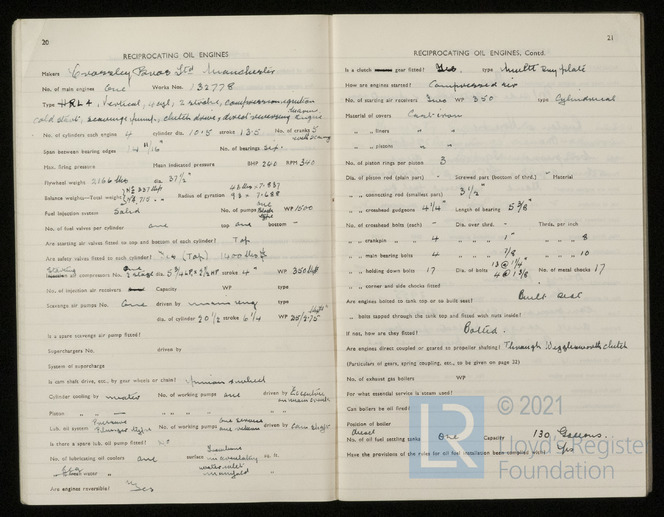 20
RECIPROCATING OIL ENGINES
Makers Crossley Bros Ltd Manchester
No. of main engines One Works Nos. 132778
Type HRL4, Vertical, 2 stroke, compression ignition
cold start, scavenge pump, clutch drive, direct reversing engine
No. of cylinders each engine 4 cylinder dia. 10.5 stroke 13.5 No. of cranks 5
Span between bearing edges 14 11/16" No. of bearings Six.
Max. firing pressure Mean indicated pressure BHP 240 RPM 340
Flywheel weight 2166 lbs dia 37½"
Balance weights—Total weight Radius of gyration
Fuel injection system Solid No. of pumps one WP 1500
No. of fuel valves per cylinder one top one bottom -
Are starting air valves fitted to top and bottom of each cylinder? Top
Are safety valves fitted to each cylinder? (Top) 1400
air compressors No. One 2 stage dia. stroke 4" WP 350
No. of injection air receivers Capacity WP type
Scavenge air pumps No. One driven by main eng type
dia. of cylinder 20½ stroke 6¼ WP
Is a spare scavenge air pump fitted?
Superchargers No. driven by
System of supercharge
Is cam shaft drive, etc., by gear wheels or chain?
Cylinder cooling by water No. of working pumps one driven by
Piston „ „ — „ „ „
Lub. oil system No. of working pumps driven by
Is there a spare lub. oil pump fitted? No
No. of lubricating oil coolers one surface sq. ft.
Sea water „ „
Are engines reversible? Yes
21
RECIPROCATING OIL ENGINES, Contd.
Is a clutch gear fitted? Yes type Multi plate
How are engines started? Compressed air
No. of starting air receivers Two WP 350 type Cylindrical
Material of covers Cast iron
„ „ liners „
„ „ pistons „
No. of piston rings per piston 3
Dia. of piston rod (plain part) - Screwed part (bottom of thrd.) - Material
„ „ connecting rod (smallest part) 3½"
„ „ crosshead gudgeons 4¼" Length of bearing 5⅜"
No. of crosshead bolts (each) - Dia. over thrd. - Thrds. per inch
„ „ crankpin „ 4 „ „ 1" „ „ 8
„ „ main bearing bolts 4 „ „ 7/8 „ „ 10
„ „ holding down bolts 17 Dia. of bolts 13 @ 1¼" 4 @ 1⅜ No. of metal chocks 17
„ „ corner and side chocks fitted
Are engines bolted to tank top or to built seat? Built seat
„ bolts tapped through the tank top and fitted with nuts inside?
If not, how are they fitted? Bolted.
Are engines direct coupled or geared to propeller shafting? Through Wigglesworth clutch
(Particulars of gears, spring coupling, etc., to be given on page 32)
No. of exhaust gas boilers WP
For what essential service is steam used?
Can boilers be oil fired?
Position of boiler
No. of oil fuel settling tanks One Capacity 130 Gallons.
diesel
Have the provisions of the rules for oil fuel installation been complied with? Yes
LR
© 2021
Lloyd's Register
Foundation